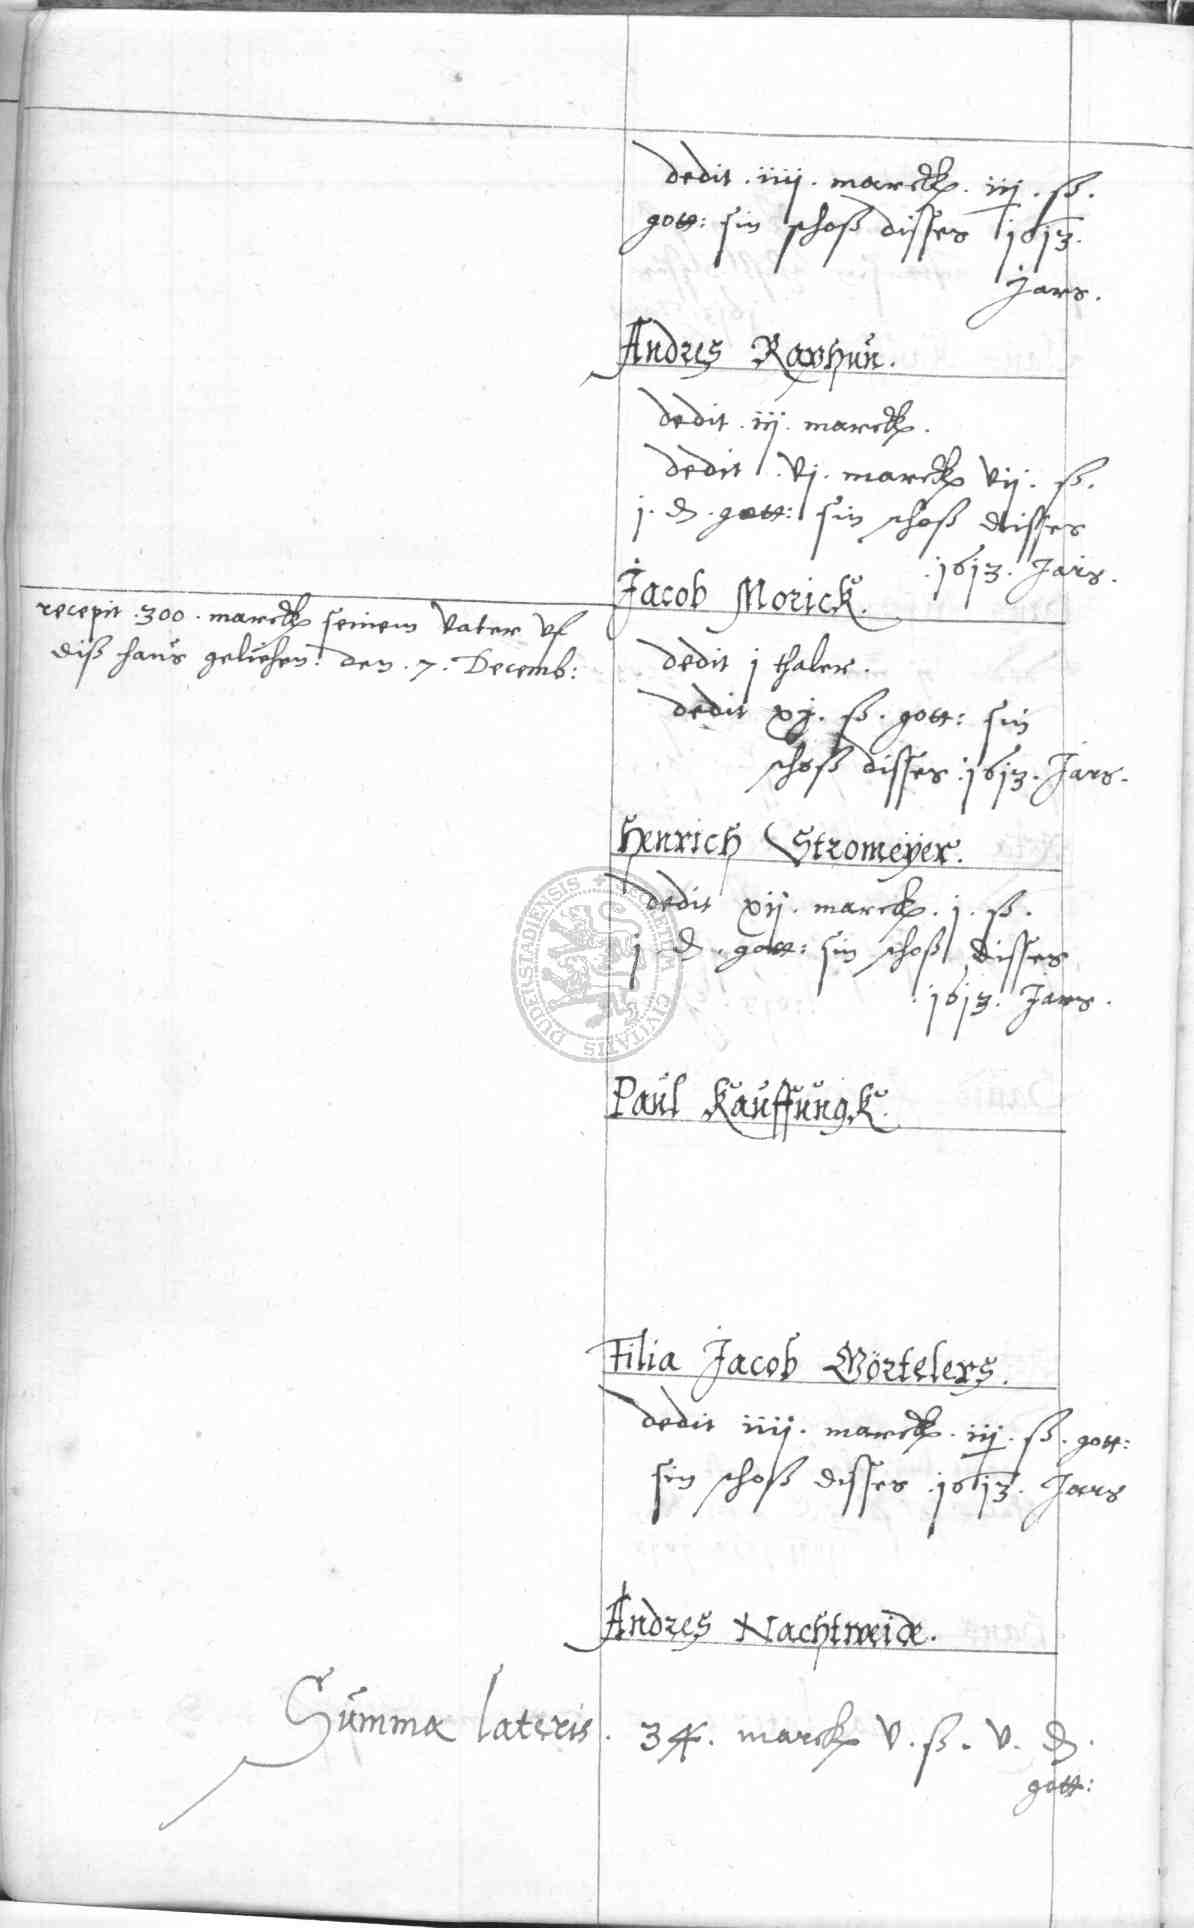 dedit . iiij . marck . iij . ß .
gott: sin schoß disses 1613.
Jars .
Andres Raphun .
dedit . iij . marck .
dedit . vj . marck vij . ß .
j . d . gott: sin schoß disses
. 1613 . Jars .
Jacob Morick .
recepit . 300 . marck seinem Vater vf
diß haus geliehen: den . 7 . Decemb:
dedit j thaler .
dedit xj . ß . gott: sin
schoß disses . 1613 . Jars .
Henrich Stromeÿer .
dedit xij . marck . j . ß .
j . d . gott: sin schoß disses
. 1613 . Jars .
SECRETUM CIVITATIS DUDERSTADIENSIS
Paul Kauffungk .
Filia Jacob Wörtelers .
dedit iiij . marck . iij . ß . gott:
sin schoß disses . 1613 . Jars
Andres Nachtweide .
Summa lateris . 34 . marck v . ß . v . d .
gott: